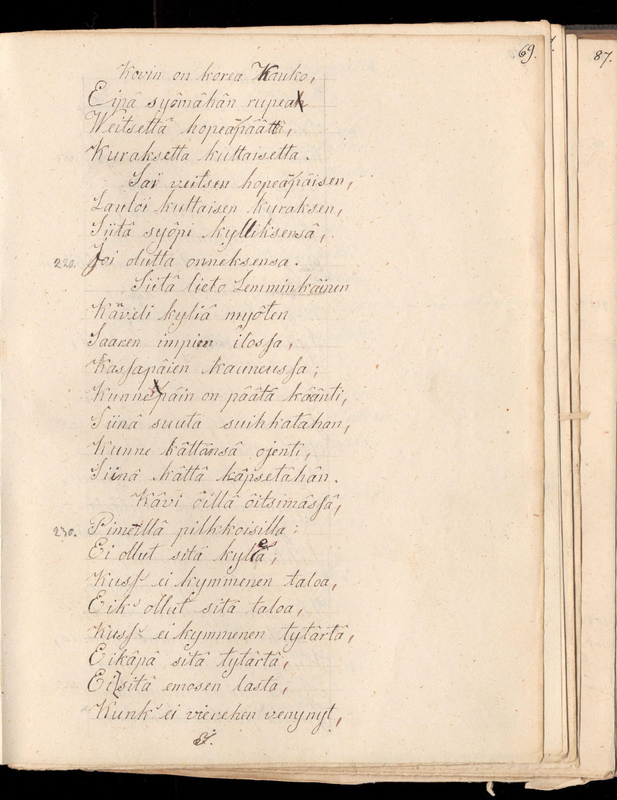 69.
87.
Kovin on korea Kauko,
Eipä syömähän rupea
Weitsettä hopeapäättä,
Kuraksetta kultaisetta.
Sai veitsen hopeapäisen,
Lauloi kultaisen kuraksen,
Siitä syöpi kylliksensä,
220. Joi olutta onneksensa.
Siitä lieto Lemminkäinen
Käveli kyliä myöten
Saaren impien ilossa,
Kassapäien kauneussa;
Kunne päin on päätä käänti,
Siinä suuta suihkatahan,
Kunne kättänsä ojenti,
Siinä kättä käpsetähän.
Kävi öillä öitsimässä,
230. Pimeillä pilkkoisilla:
Ei ollut sitä kyleä,
Kuss' ei kymmenen taloa,
Eik' ollut sitä taloa,
Kuss' ei kymmenen tytärtä,
Eikäpä sitä tytärtä,
Ei sitä emosen lasta,
Kunk' ei vierehen venynyt,